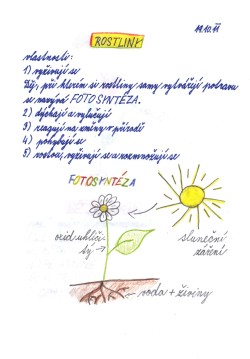 ROSTLINY
vlastnosti:
1) vyživují se
Děj, při kterém si rostliny samy vytvářejí potravu
se nazývá FOTOSYNTÉZA.
2) dýchají a vylučují
3) reagují na změny v přírodě
4) pohybují se
5) rostou, vyživují se a rozmnožují se
FOTOSYNTÉZA
oxid uhliči-
tý
sluneční
záření
voda + živiny